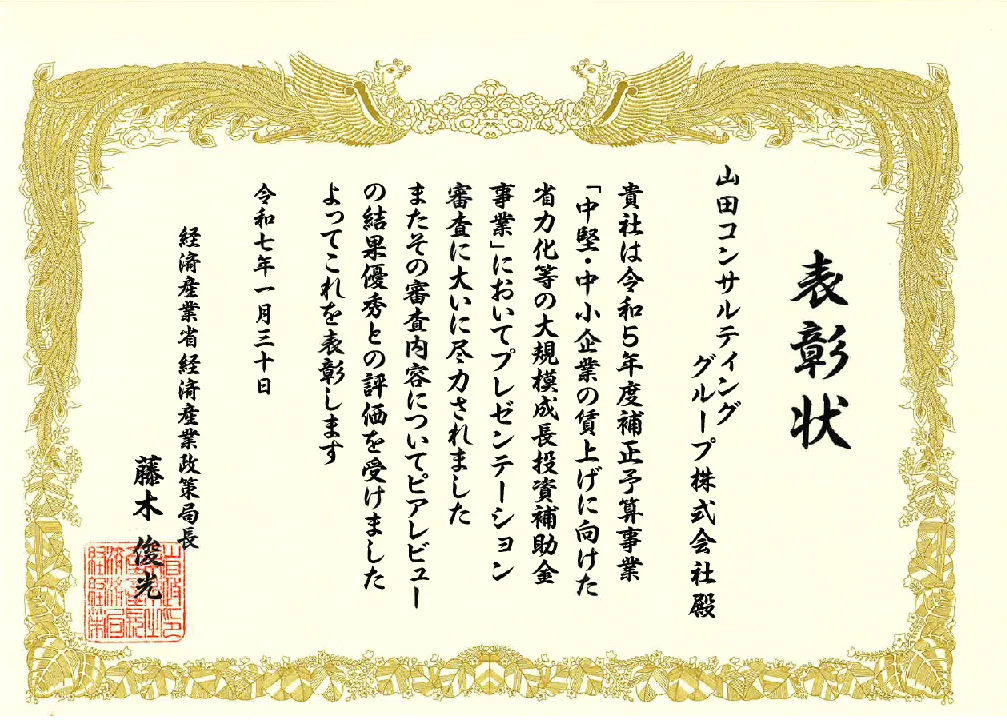 表彰状
山田コンサルティング
グループ株式会社殿
貴社は令和5年度補正予算事業
「中堅・中小企業の賃上げに向けた
省力化等の大規模成長投資補助金
事業」においてプレゼンテーション
審査に大いに尽力されました
またその審査内容についてピアレビュー
の結果優秀との評価を受けました
よってこれを表彰します
令和七年一月三十日
経済産業省経済産業政策局長
藤木俊光